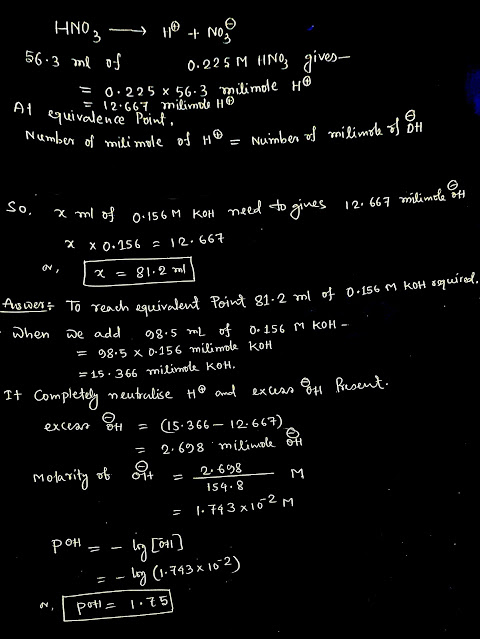 HNO₃ ⟶ H⊕ + NO₃⊖
56.3 ml of 0.225 M HNO₃ gives—
= 0.225 × 56.3 milimole H⊕
= 12.667 milimole H⊕
At equivalence Point,
Number of milimole of H⊕ = Number of milimole of ⊖OH
So, x ml of 0.156 M KOH need to gives 12.667 milimole ⊖OH
x × 0.156 = 12.667
or, x = 81.2 ml
Answer:- To reach equivalent Point 81.2 ml of 0.156 M KOH required.
· When we add 98.5 mL of 0.156 M KOH -
= 98.5 × 0.156 milimole KOH
= 15.366 milimole KOH.
It Completely neutralise H⊕ and excess ⊖OH Present.
excess ⊖OH = (15.366 - 12.667)
= 2.698 milimole ⊖OH
Molarity of ⊖OH = 2.698/154.8 M
= 1.743 × 10⁻² M
POH = - log [⊖OH]
= - log (1.743 × 10⁻²)
or, POH = 1.75